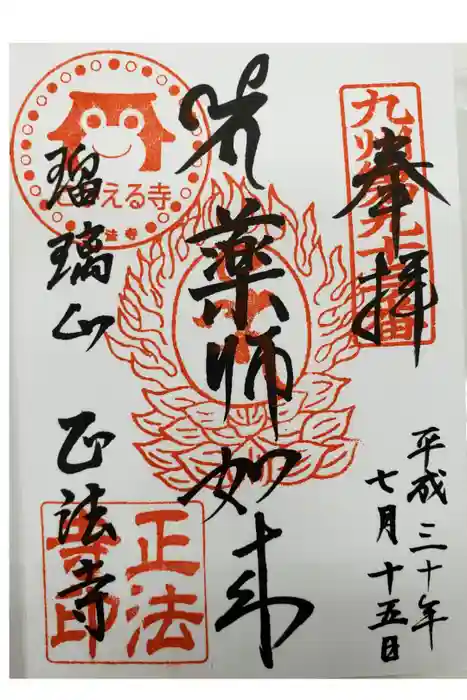 奉拝
平成三十年
七月十五日
薬師如来
瑠璃山
正法寺
正法
寺印
える寺